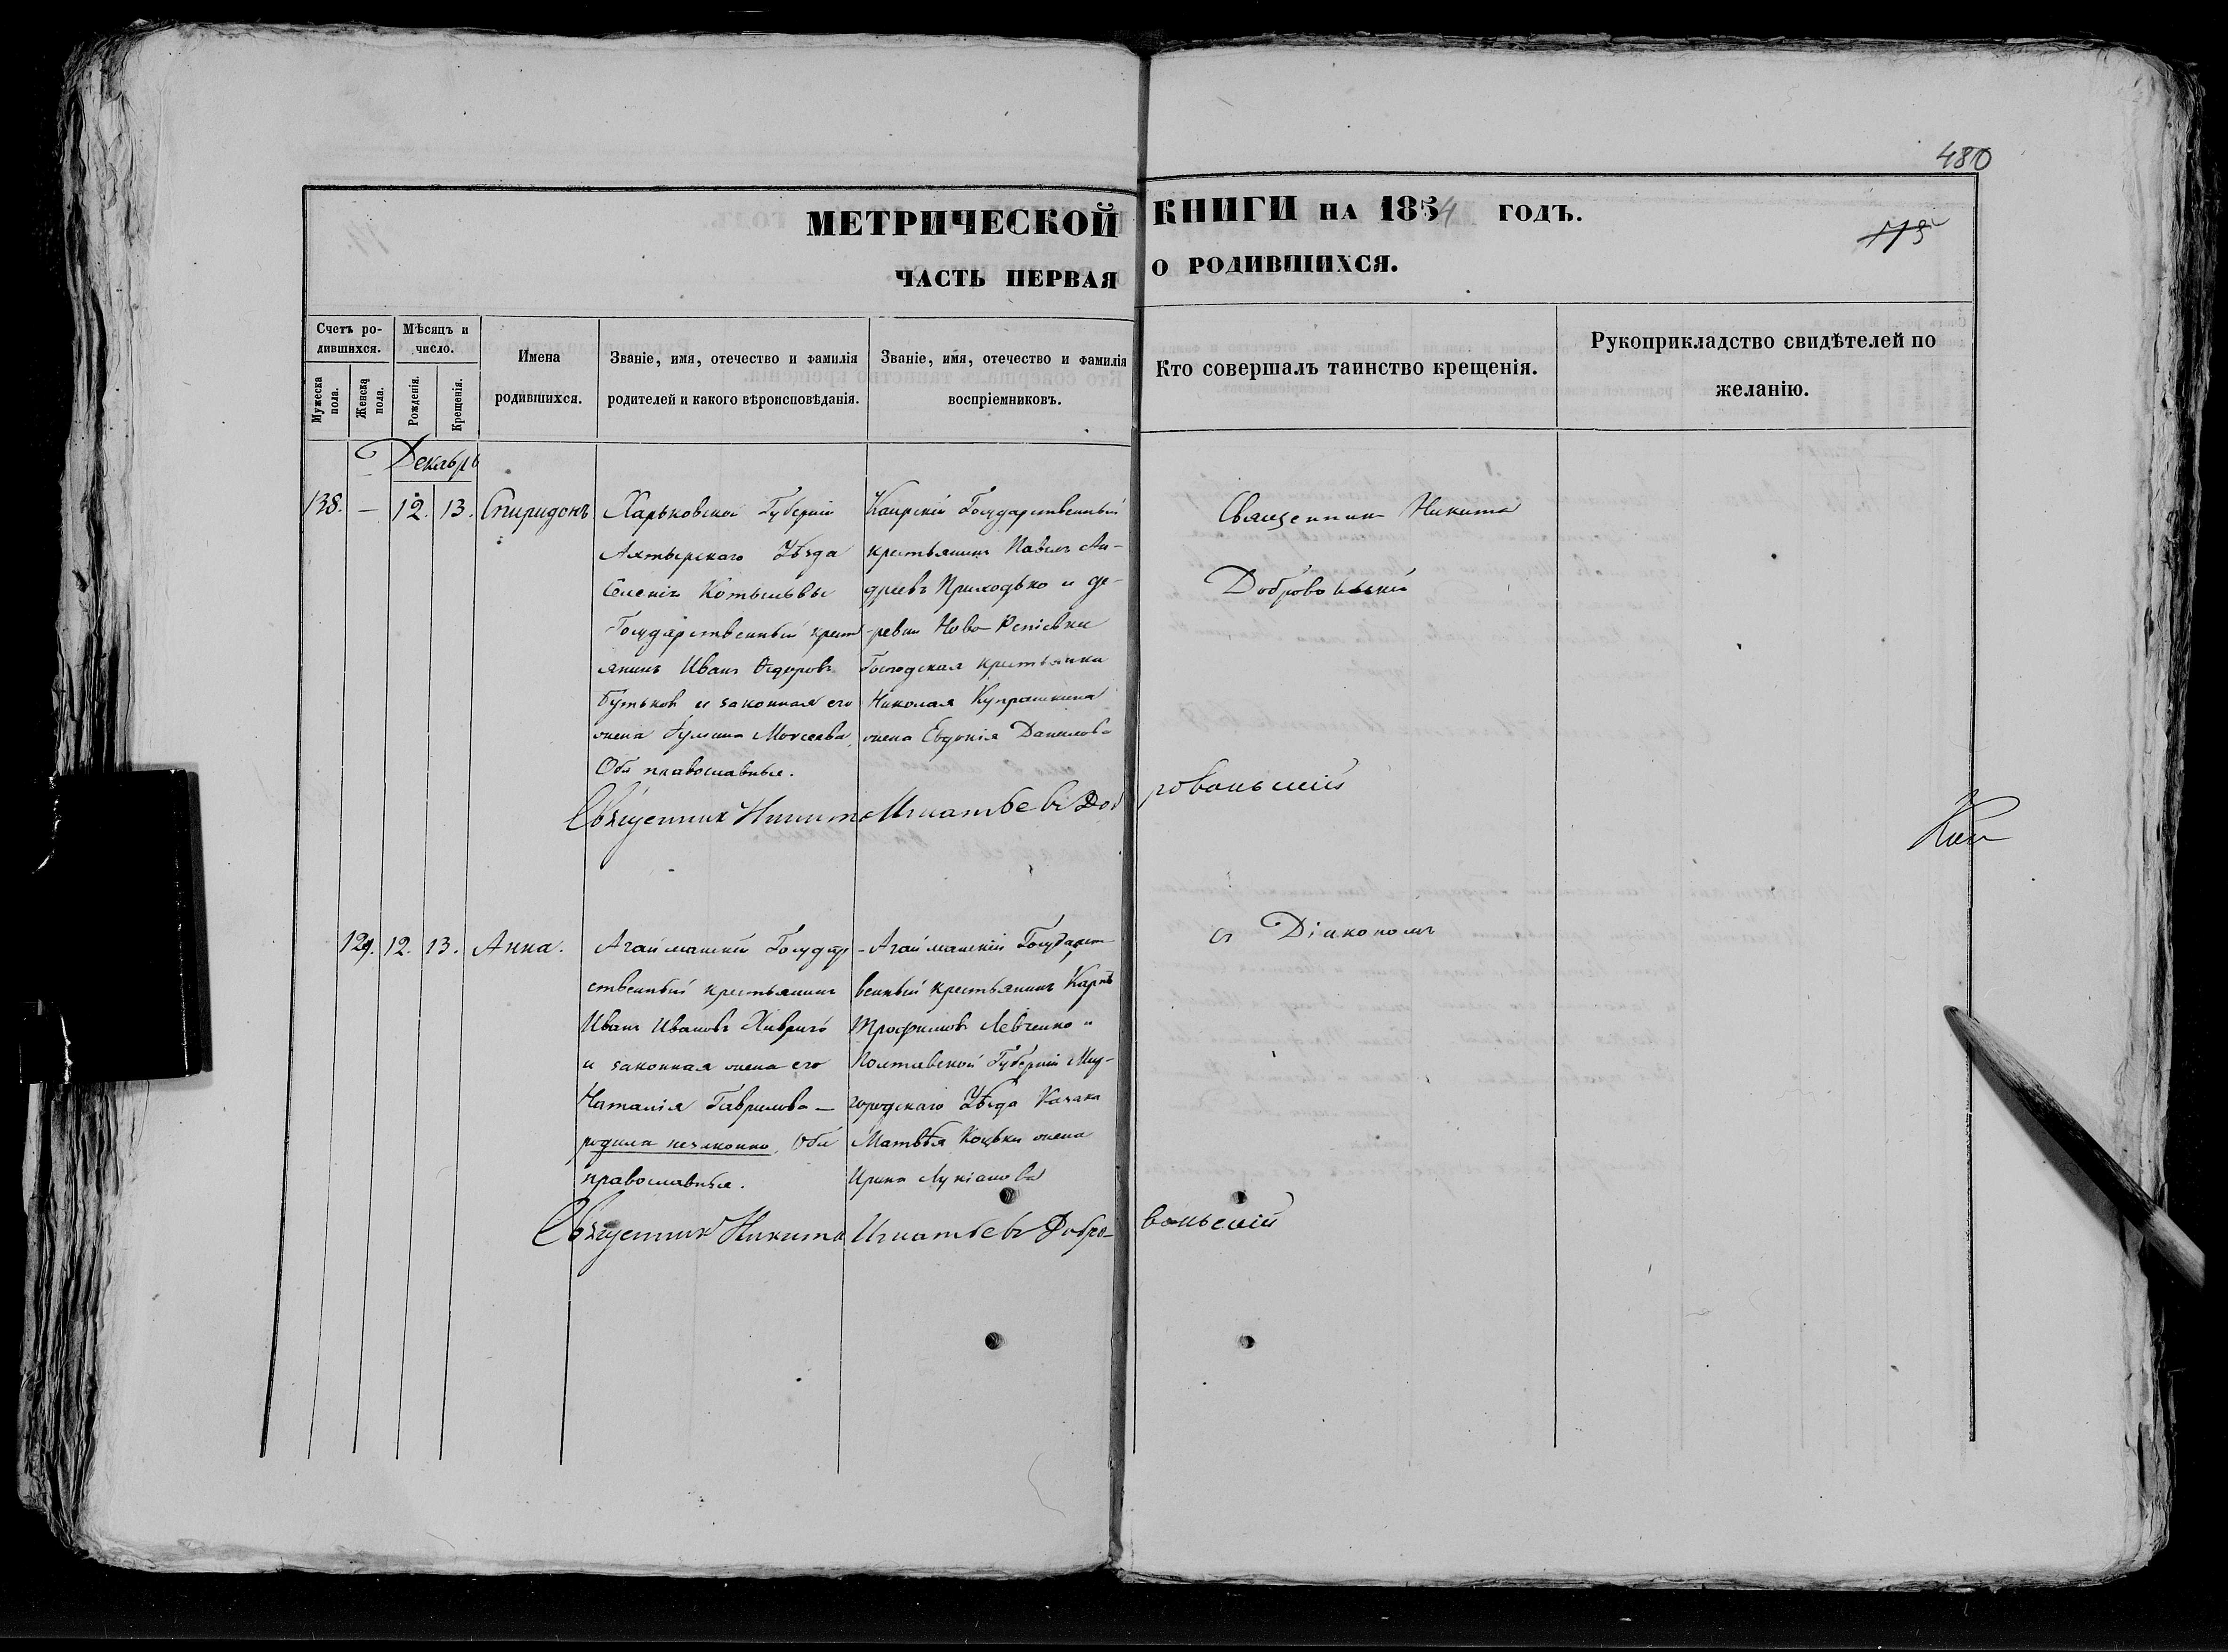 480
МЕТРИЧЕСКОЙ КНИГИ НА 1854 ГОДЪ.
175
ЧАСТЬ ПЕРВАЯ О РОДИВШИХСЯ.
Счетъ ро-
дившихся.
Мужеска пола.
Женска пола.
Мѣсяцъ и
число.
Рожденія.
Крещенія.
Имена
родившихся.
Званіе, имя, отечество и фамилія
родителей и какого вѣроисповѣданія.
Званіе, имя, отечество и фамилія
воспріемниковъ.
Кто совершалъ таинство крещенія.
Рукоприкладство свидѣтелей по
желанію.
Декабрь
138. — 12. 13. Спиридонъ
Харьковской Губерніи
Ахтырскаго Уѣзда
Селенія Котельвы
Государственный крест
янинъ Иванъ Ѳедоровъ
Бутьков и законная его
жена Моисеева
Оба православные.
Каирскій Государственный
крестьянинъ Павелъ Ан-
дреевъ Приходько и де-
ревни Ново
Господская крестьянки
Николая Купрашкина
жена Евдокія Данилова
Священникъ Никита
Добровольскій
Священник Никита Игнатьевъ Добровольскій
Каи
129. 12. 13. Анна.
Агайманскій Государ
ственный крестьянинъ
Иванъ Ивановъ
и законная жена его
Наталія Гаврилова —
родила незаконно. Оба
православные.
Агайманскій Государст
венный крестьянинъ Карпъ
Трофимовъ Левченко и
Полтавской Губерніи Мир-
городскаго Уѣзда Казака
Матвѣя Коцьки жена
Ирина Лукіанова
съ Діакономъ
Священник Никита Игнатьевъ Добро-вольскій